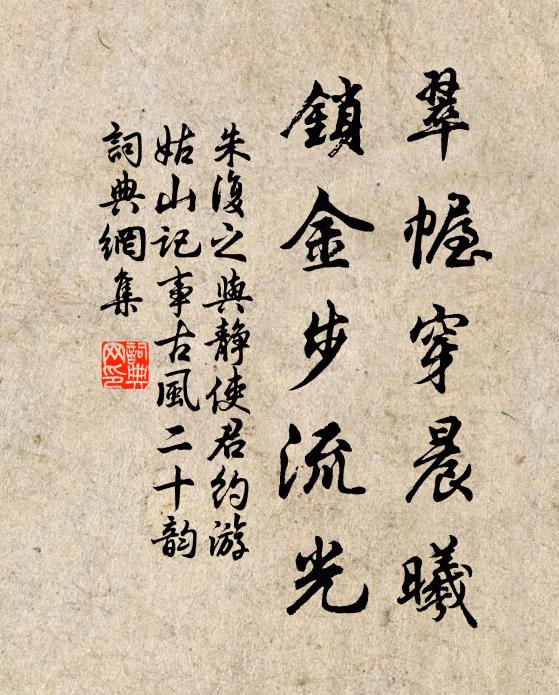 翠幄穿晨曦
鎖金步流光
朱復之與靜使君約游
姑山記事古風二十韵
詞典網集
詞典
网印